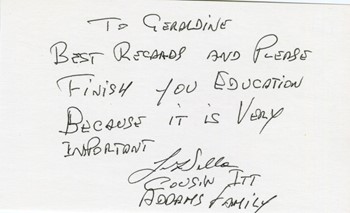 To Geraldine
Best Regards and Please
Finish you Education
Because it is Very
Important
Cousin Itt
Addams Family